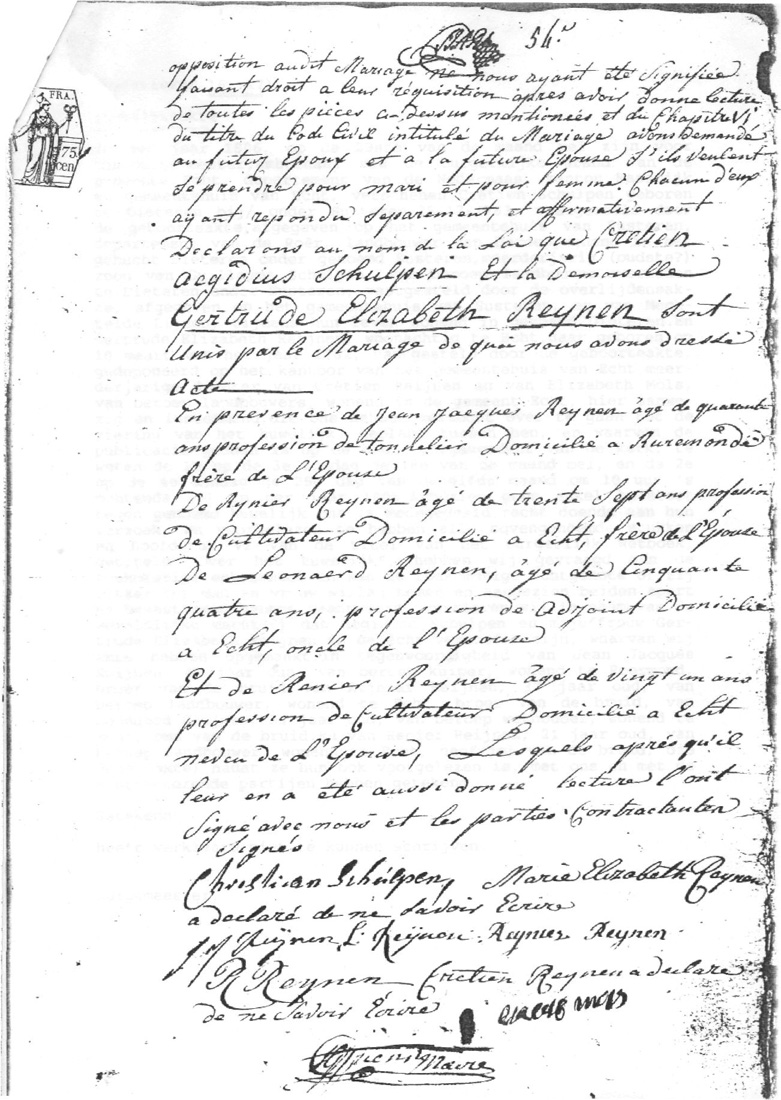 54.
opposition audit Mariage ne nous ayant été signifiée
faisant droit a leur requisition après avoir donné lecture
de toutes les pièces ci dessus mentionées et du Chapitre VI
du titre du Code Civil intitulé du Mariage avons Demandé
au futur Epoux et à la future Epouse S'ils veulent
se prendre pour mari et pour femme. Chacun d'eux
ayant repondu separement, et affirmativement
Declarons au nom de la Loi que Cretien
Aegidius Schulpen Et la Demoiselle
Gertrude Elizabeth Reynen Sont
Unis par le Mariage de quoi nous avons dressé
Acte
En presence de Jean Jacques Reynen âgé de quarante
ans profession de tonnelier Domicilié a Ruremonde
frère de L'Epouse
De Rynier Reynen âgé de trente Sept ans profession
de Cultivateur Domicilié a Echt, frère de L'Epouse
De Leonaerd Reynen, âgé de Cinquante
quatre ans, profession de Adjoint Domicilié
a Echt, oncle de l'Epouse
Et de Renier Reynen âgé de vingt un ans
profession de Cultivateur Domicilié a Echt
neveu de L'Epouse, Lesquels après qu'il
leur en a été aussi donné lecture l'ont
Signé avec nous et les parties Contractanten
Signés
FRA
75
cen
Christian Schulpen, Marie Elizabeth Reynen
a declaré de ne Savoir Ecrire
Reynen L. Reijnen Reynier Reynen
R Reynen Cretien Reynen a declare
de ne Savoir Ecrire
Maire